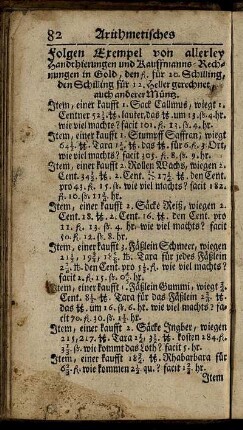 82 Arithmetisches
Folgen Exempel von allerley
Handthierungen und Kauffmanns-Rech-
nungen in Gold, den fl. für 20. Schilling,
den Schilling für 12. Heller gerechnet,
auch anderer Müntz.
Item, einer kaufft 1. Sack Calimus, wiegt 1.
Centner 52¾. ℔. lauter, das ℔. um 13. ß. 4. hr.
wie viel machts? facit 101. fl. 13. ß. 4. hr.
Item, einer kaufft 1. Stumpff Saffran; wiegt
℔. Tara ℔. das ℔. für 6. fl. 3. Ort,
wie viel machts? facit 305. fl. 8. ß. 9. hr.
Item, einer kaufft 2. Rollen Wachs, wiegen 2.
Cent. ℔. 2. Cent. ℔. den Cent.
pro 43. fl. 15. ß. wie viel machts? facit 182.
fl. 10. ß. hr.
Item, einer kaufft 2. Säcke Reiß, wiegen 2.
Cent. 18. ℔. 2. Cent. 16. ℔. den Cent. pro
11. fl. 13. ß. 4. hr. wie viel machts? facit
50. fl. 12. ß. 8. hr.
Item, einer kaufft 3. Fäßlein Schmeer, wiegen
℔. Tara für jedes Fäßlein
℔. den Cent. pro fl. wie viel machts?
facit 2. fl. 15. ß. hr.
Item, einer kaufft 1. Fäßlein Gummi, wiegt
Cent. ℔. Tara für das Fäßlein ℔.
das ℔. um 16. ß. 6. hr. wie viel machts? fa-
cit 70. fl. 30. ß. hr.
Item, einer kaufft 2. Säcke Ingber, wiegen
215, 217. ℔. Tara ℔. kosten 184. fl.
ß. wie kommt das Loth? facit 5. hr.
Item, einer kaufft ℔. Rhabarbara für
fl. wie kommen qu.? facit hr.
Item